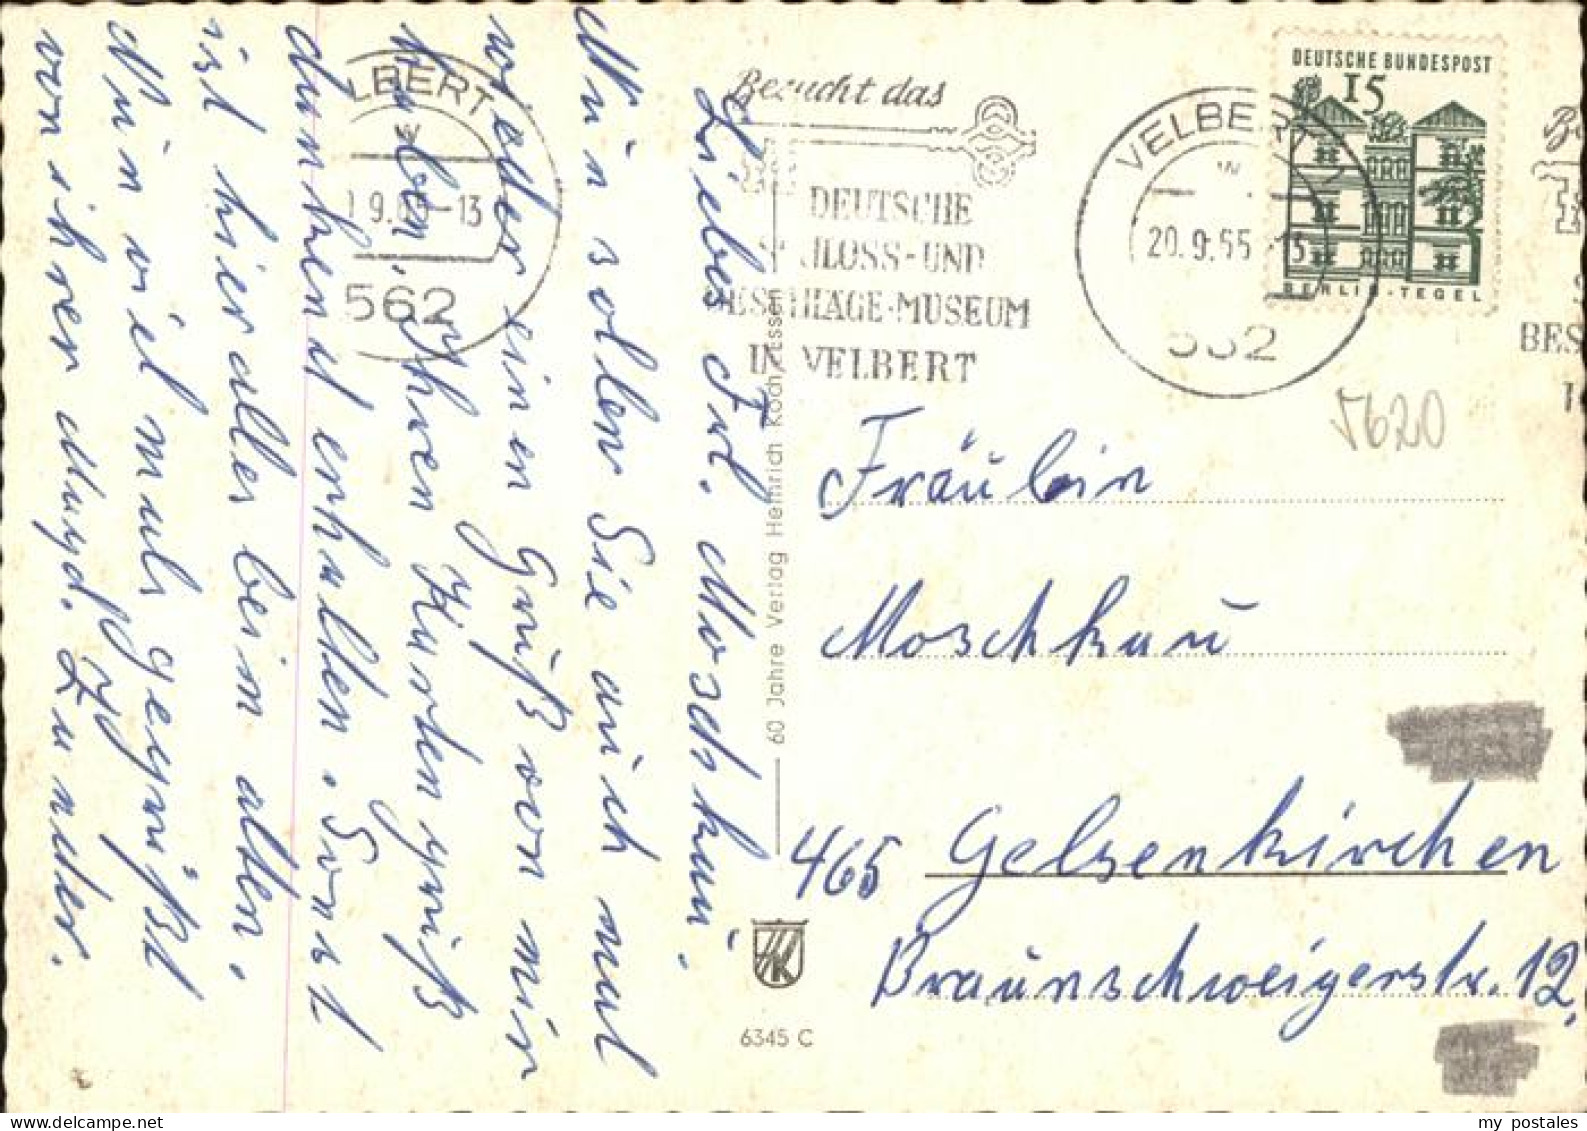 Liebes Frl. Moschkau.
Nun sollen Sie auch mal
wieder einen Gruß von mir
haben. Ihren Kartengruß
dankend erhalten. Sonst
ist hier alles beim alten.
Nun viel mals gegrüßt
von ihrer Magd. Zunder.
LBERT
9.65-13
562
Besucht das
DEUTSCHE
SCHLOSS-UND
BESCHLÄGE-MUSEUM
IN VELBERT
VELBERT
w
20.9.65-13
562
DEUTSCHE BUNDESPOST
15
BERLIN-TEGEL
BES
5620
Fräulein
Moschkau
465 Gelsenkirchen
Braunschweigerstr. 12.
60 Jahre Verlag Heinrich Koch, Essen
HK
6345 C
my postales